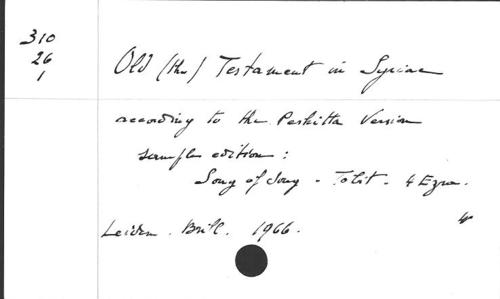 310
26
1
Old (the) Testament in Syriac
according to the Peshitta Version
sample edition :
Song of Song - Tobit - 4 Ezra.
Leiden. Brill. 1966.